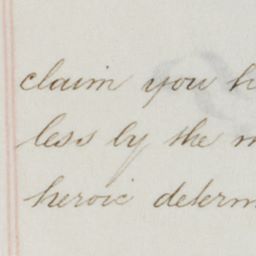 claim you h
less by the m
heroic determ